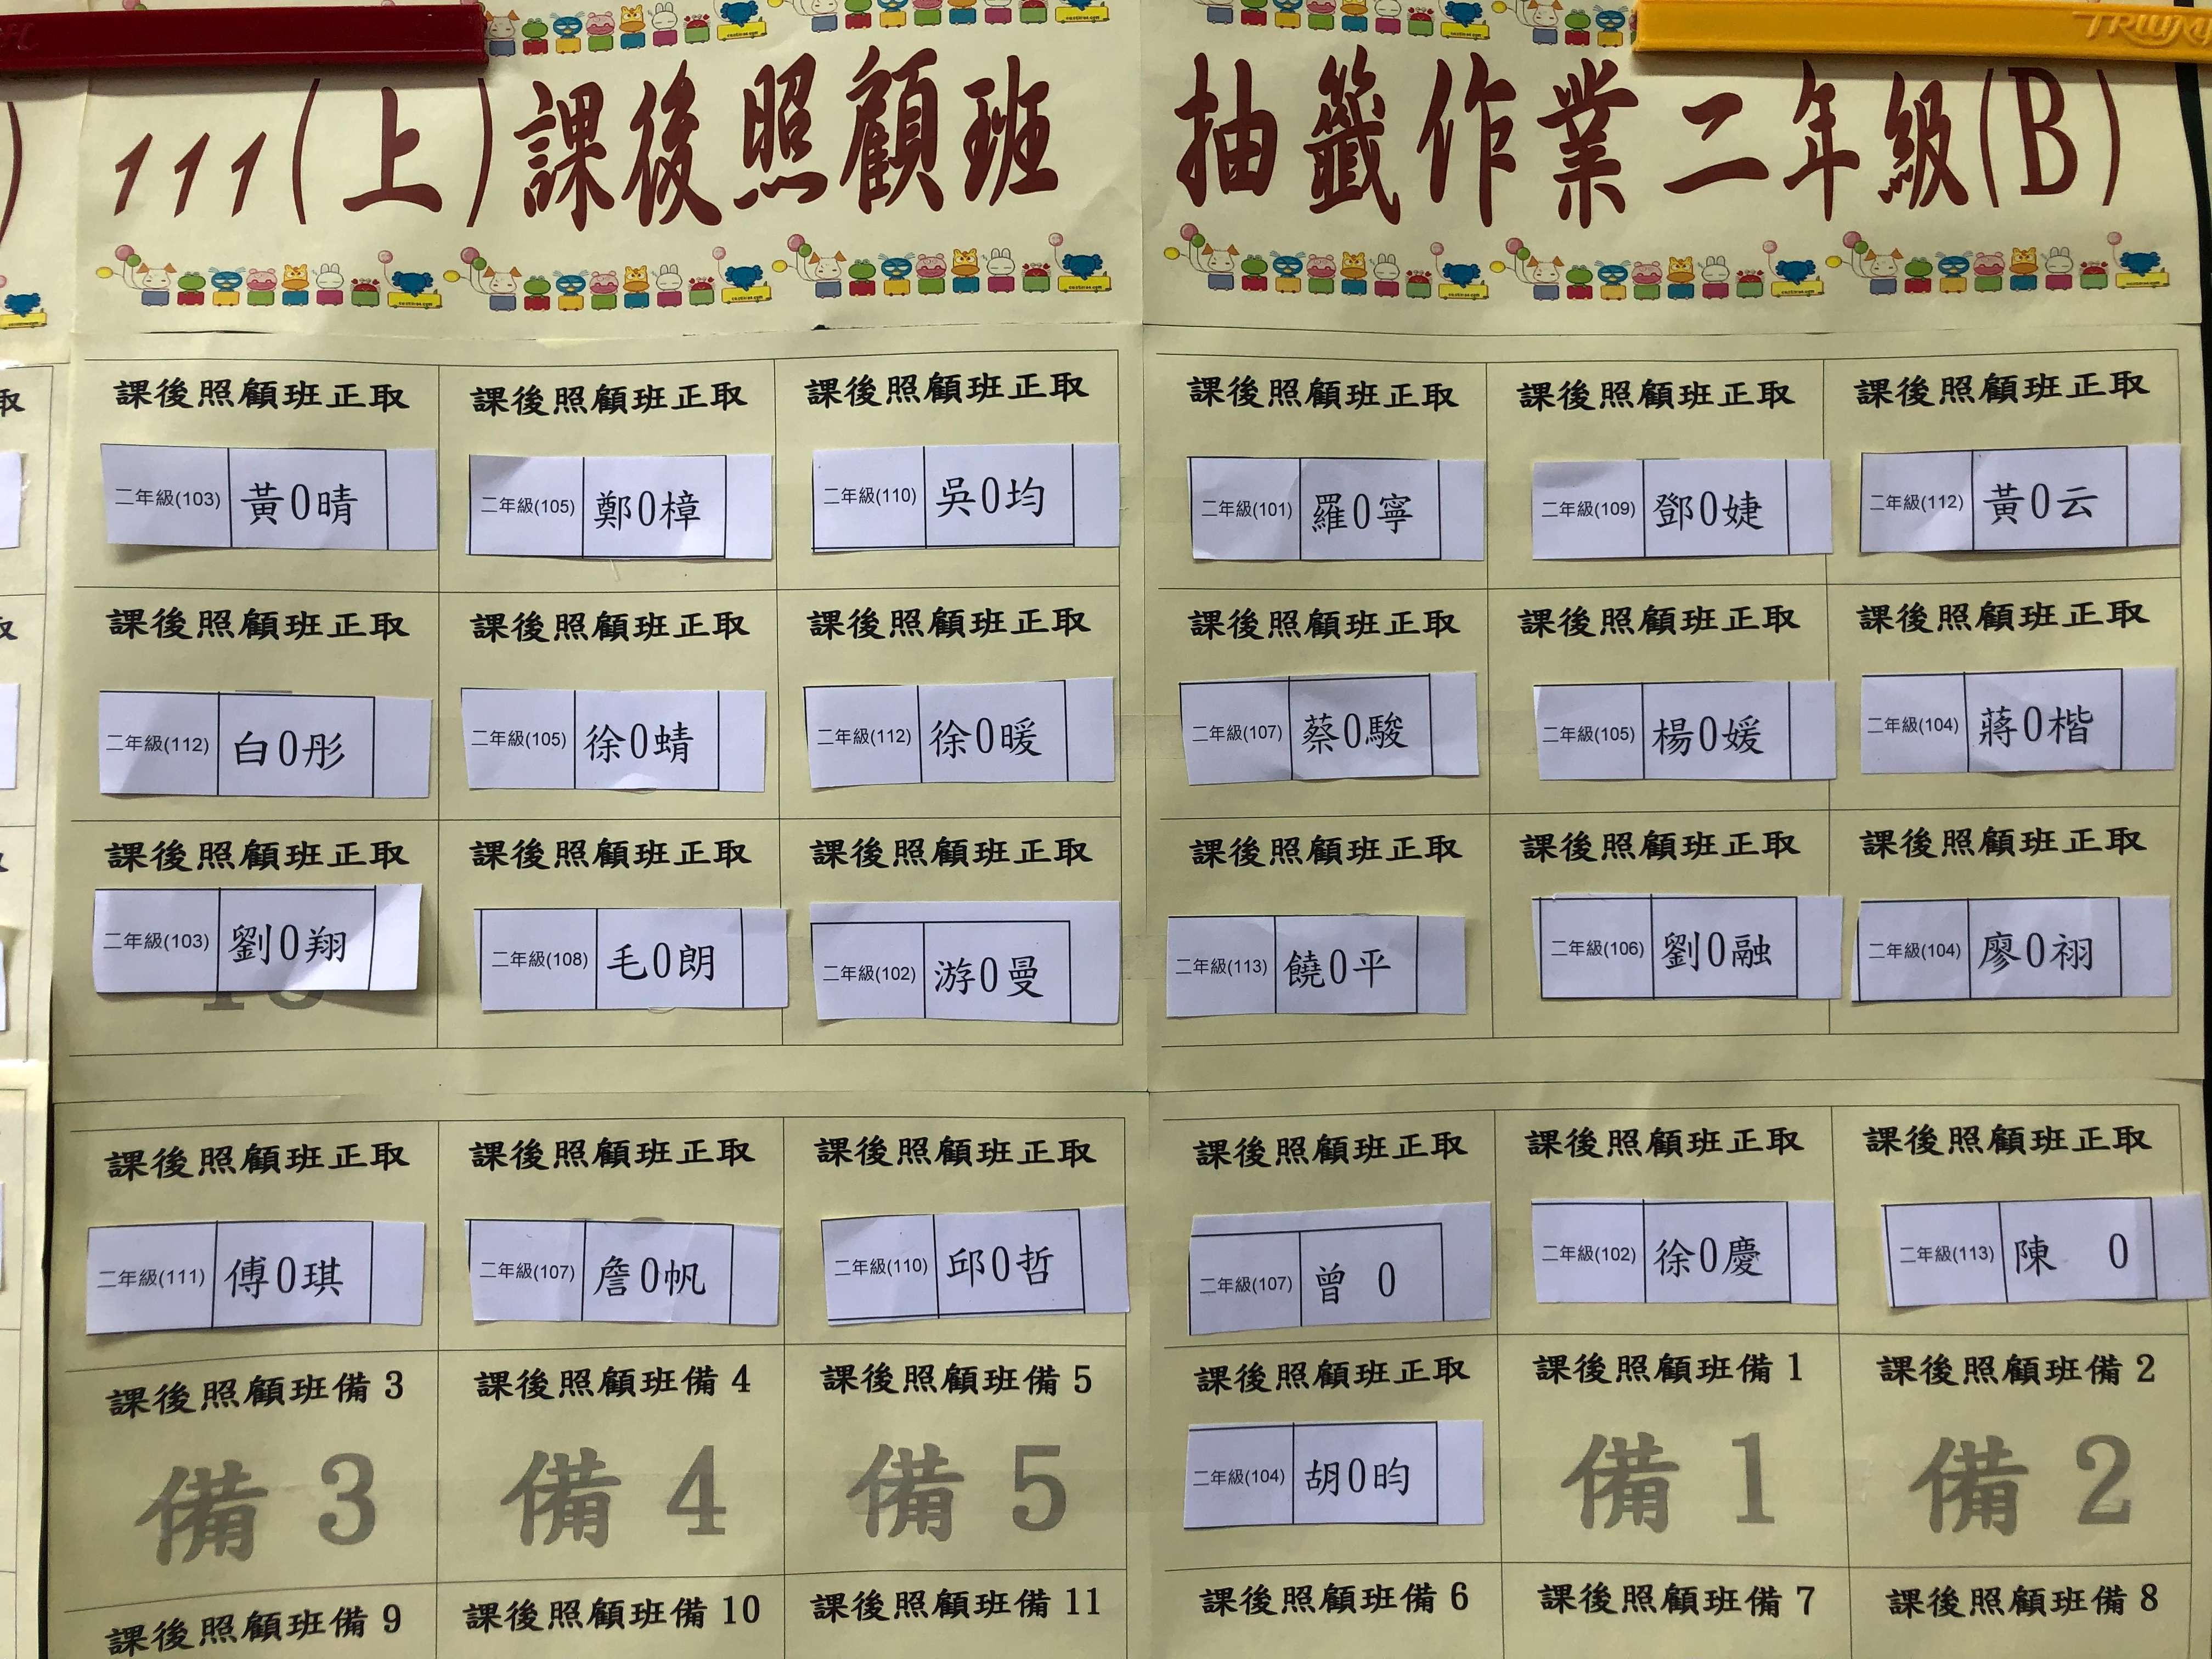 TRIUMP
111(上)課後照顧班 抽籤作業二年級(B)
課後照顧班正取 課後照顧班正取 課後照顧班正取 課後照顧班正取 課後照顧班正取 課後照顧班正取
二年級(103) 黃0晴 二年級(105) 鄭0樟 二年級(110) 吳0均 二年級(101) 羅0寧 二年級(109) 鄧0婕 二年級(112) 黃0云
課後照顧班正取 課後照顧班正取 課後照顧班正取 課後照顧班正取 課後照顧班正取 課後照顧班正取
二年級(112) 白0彤 二年級(105) 徐0蜻 二年級(112) 徐0暖 二年級(107) 蔡0駿 二年級(105) 楊0媛 二年級(104) 蔣0楷
課後照顧班正取 課後照顧班正取 課後照顧班正取 課後照顧班正取 課後照顧班正取 課後照顧班正取
二年級(103) 劉0翔 二年級(108) 毛0朗 二年級(102) 游0曼 二年級(113) 饒0平 二年級(106) 劉0融 二年級(104) 廖0祤
課後照顧班正取 課後照顧班正取 課後照顧班正取 課後照顧班正取 課後照顧班正取 課後照顧班正取
二年級(111) 傅0琪 二年級(107) 詹0帆 二年級(110) 邱0哲 二年級(107) 曾 0 二年級(102) 徐0慶 二年級(113) 陳 0
課後照顧班備 3 課後照顧班備 4 課後照顧班備 5 課後照顧班正取 課後照顧班備 1 課後照顧班備 2
備 3 備 4 備 5 二年級(104) 胡0昀 備 1 備 2
課後照顧班備 9 課後照顧班備 10 課後照顧班備 11 課後照顧班備 6 課後照顧班備 7 課後照顧班備 8